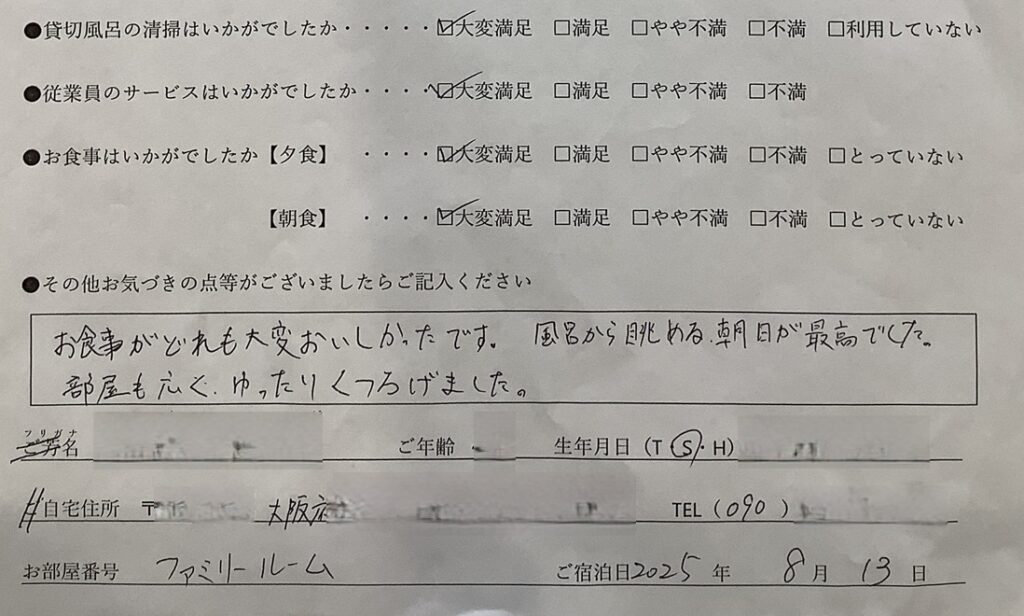 ●貸切風呂の清掃はいかがでしたか・・・・・☑大変満足 □満足 □やや不満 □不満 □利用していない
●従業員のサービスはいかがでしたか・・・・☑大変満足 □満足 □やや不満 □不満
●お食事はいかがでしたか【夕食】 ・・・・☑大変満足 □満足 □やや不満 □不満 □とっていない
【朝食】 ・・・・☑大変満足 □満足 □やや不満 □不満 □とっていない
●その他お気づきの点等がございましたらご記入ください
お食事がどれも大変おいしかったです。 風呂から眺める朝日が最高でした。
部屋も広く、ゆったりくつろげました。
フリガナ
ご芳名 ご年齢 生年月日(T S・H)
自宅住所 〒 大阪府 TEL(090 )
お部屋番号 ファミリールーム ご宿泊日2025年 8月 13日